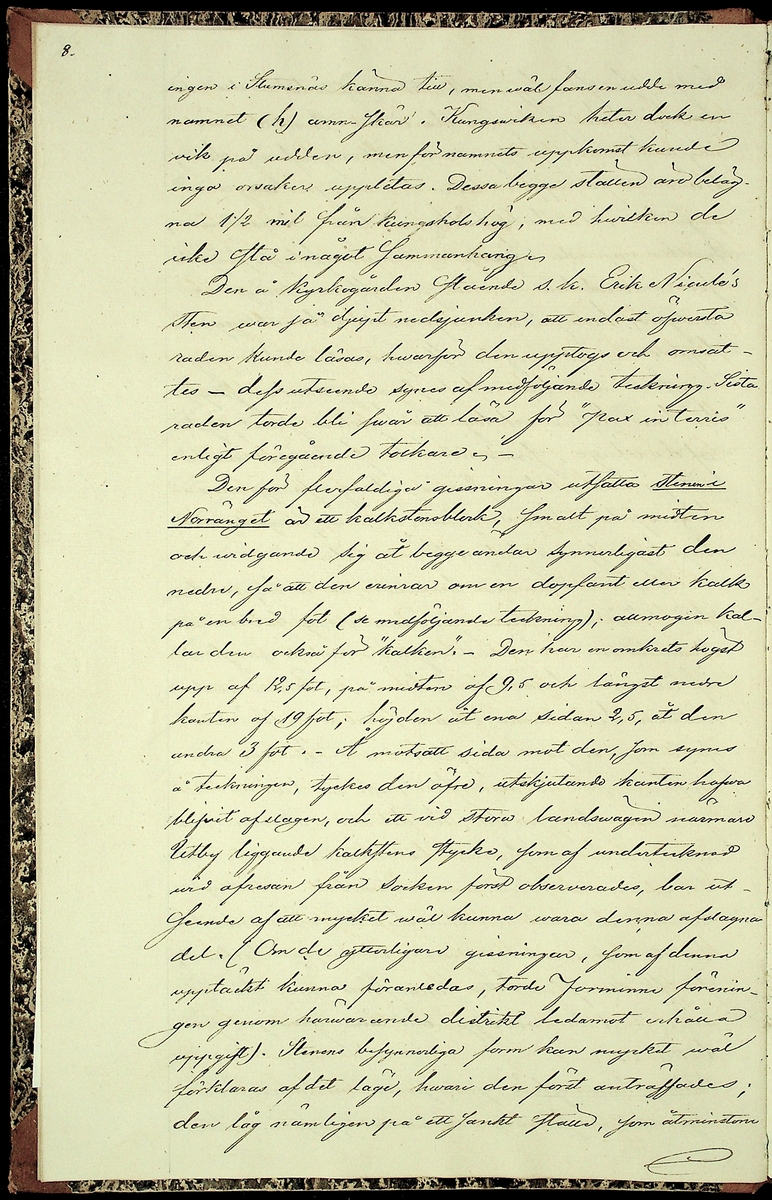 8.
ingen i Stumsnäs känna till, men wäl fans en udde med
namnet (h) amn-skär. Kungswiken heter dock en
vik på udden, men för namnets uppkomst kunde
inga orsaker uppletas. Dessa begge ställen äro beläg-
na 1 1/2 mil från Kungsholshög, med hwilken de
icke stå i något sammanhang.
Den å kyrkogården stående s.k. Erik Niculo's
sten war så djupt nedsjunken, att endast öfwersta
raden kunde läsas, hwarför den upptogs och omsat-
tes — dess utseende synes af medföljande teckning. Sista
raden torde bli swår att läsa för "Pax in terris"
enligt föregående tolkare. —
Den för flerfaldiga gissningar utsatta stenen i
Norränget är ett kalkstensblock, smalt på midten
och widgande sig åt begge ändar synnerligast den
nedre, så att den erinrar om en dopfant eller kalk
på en bred fot (se medföljande teckning); allmogen kal-
lar den också för "kalken". — Den har en omkrets högst
upp af 12,5 fot, på midten af 9,5 och längst nedre
kanten af 19 fot; höjden åt ena sidan 2,5, åt den
andra 3 fot. — Å motsatt sida mot den, som synes
å teckningen, tyckes den öfre, utskjutande kanten hafwa
blifvit afslagen, och ett vid stora landswägen närmare
Utby liggande kalkstens stycke, som af undertecknad
wid afresan från socken först observerades, bar ut-
seende af att mycket wäl kunna wara denna afslagna
del. (Om de ytterligare gissningar, som af denna
upptäckt kunna föranledas, torde Forminne förenin-
gen genom härwarande distrikt ledamot erhålla
uppgift). Stenens besynnerliga form kan mycket wäl
förklaras af det läge, hwari den först anträffades;
den låg nämligen på ett sankt ställe, som åtminstone